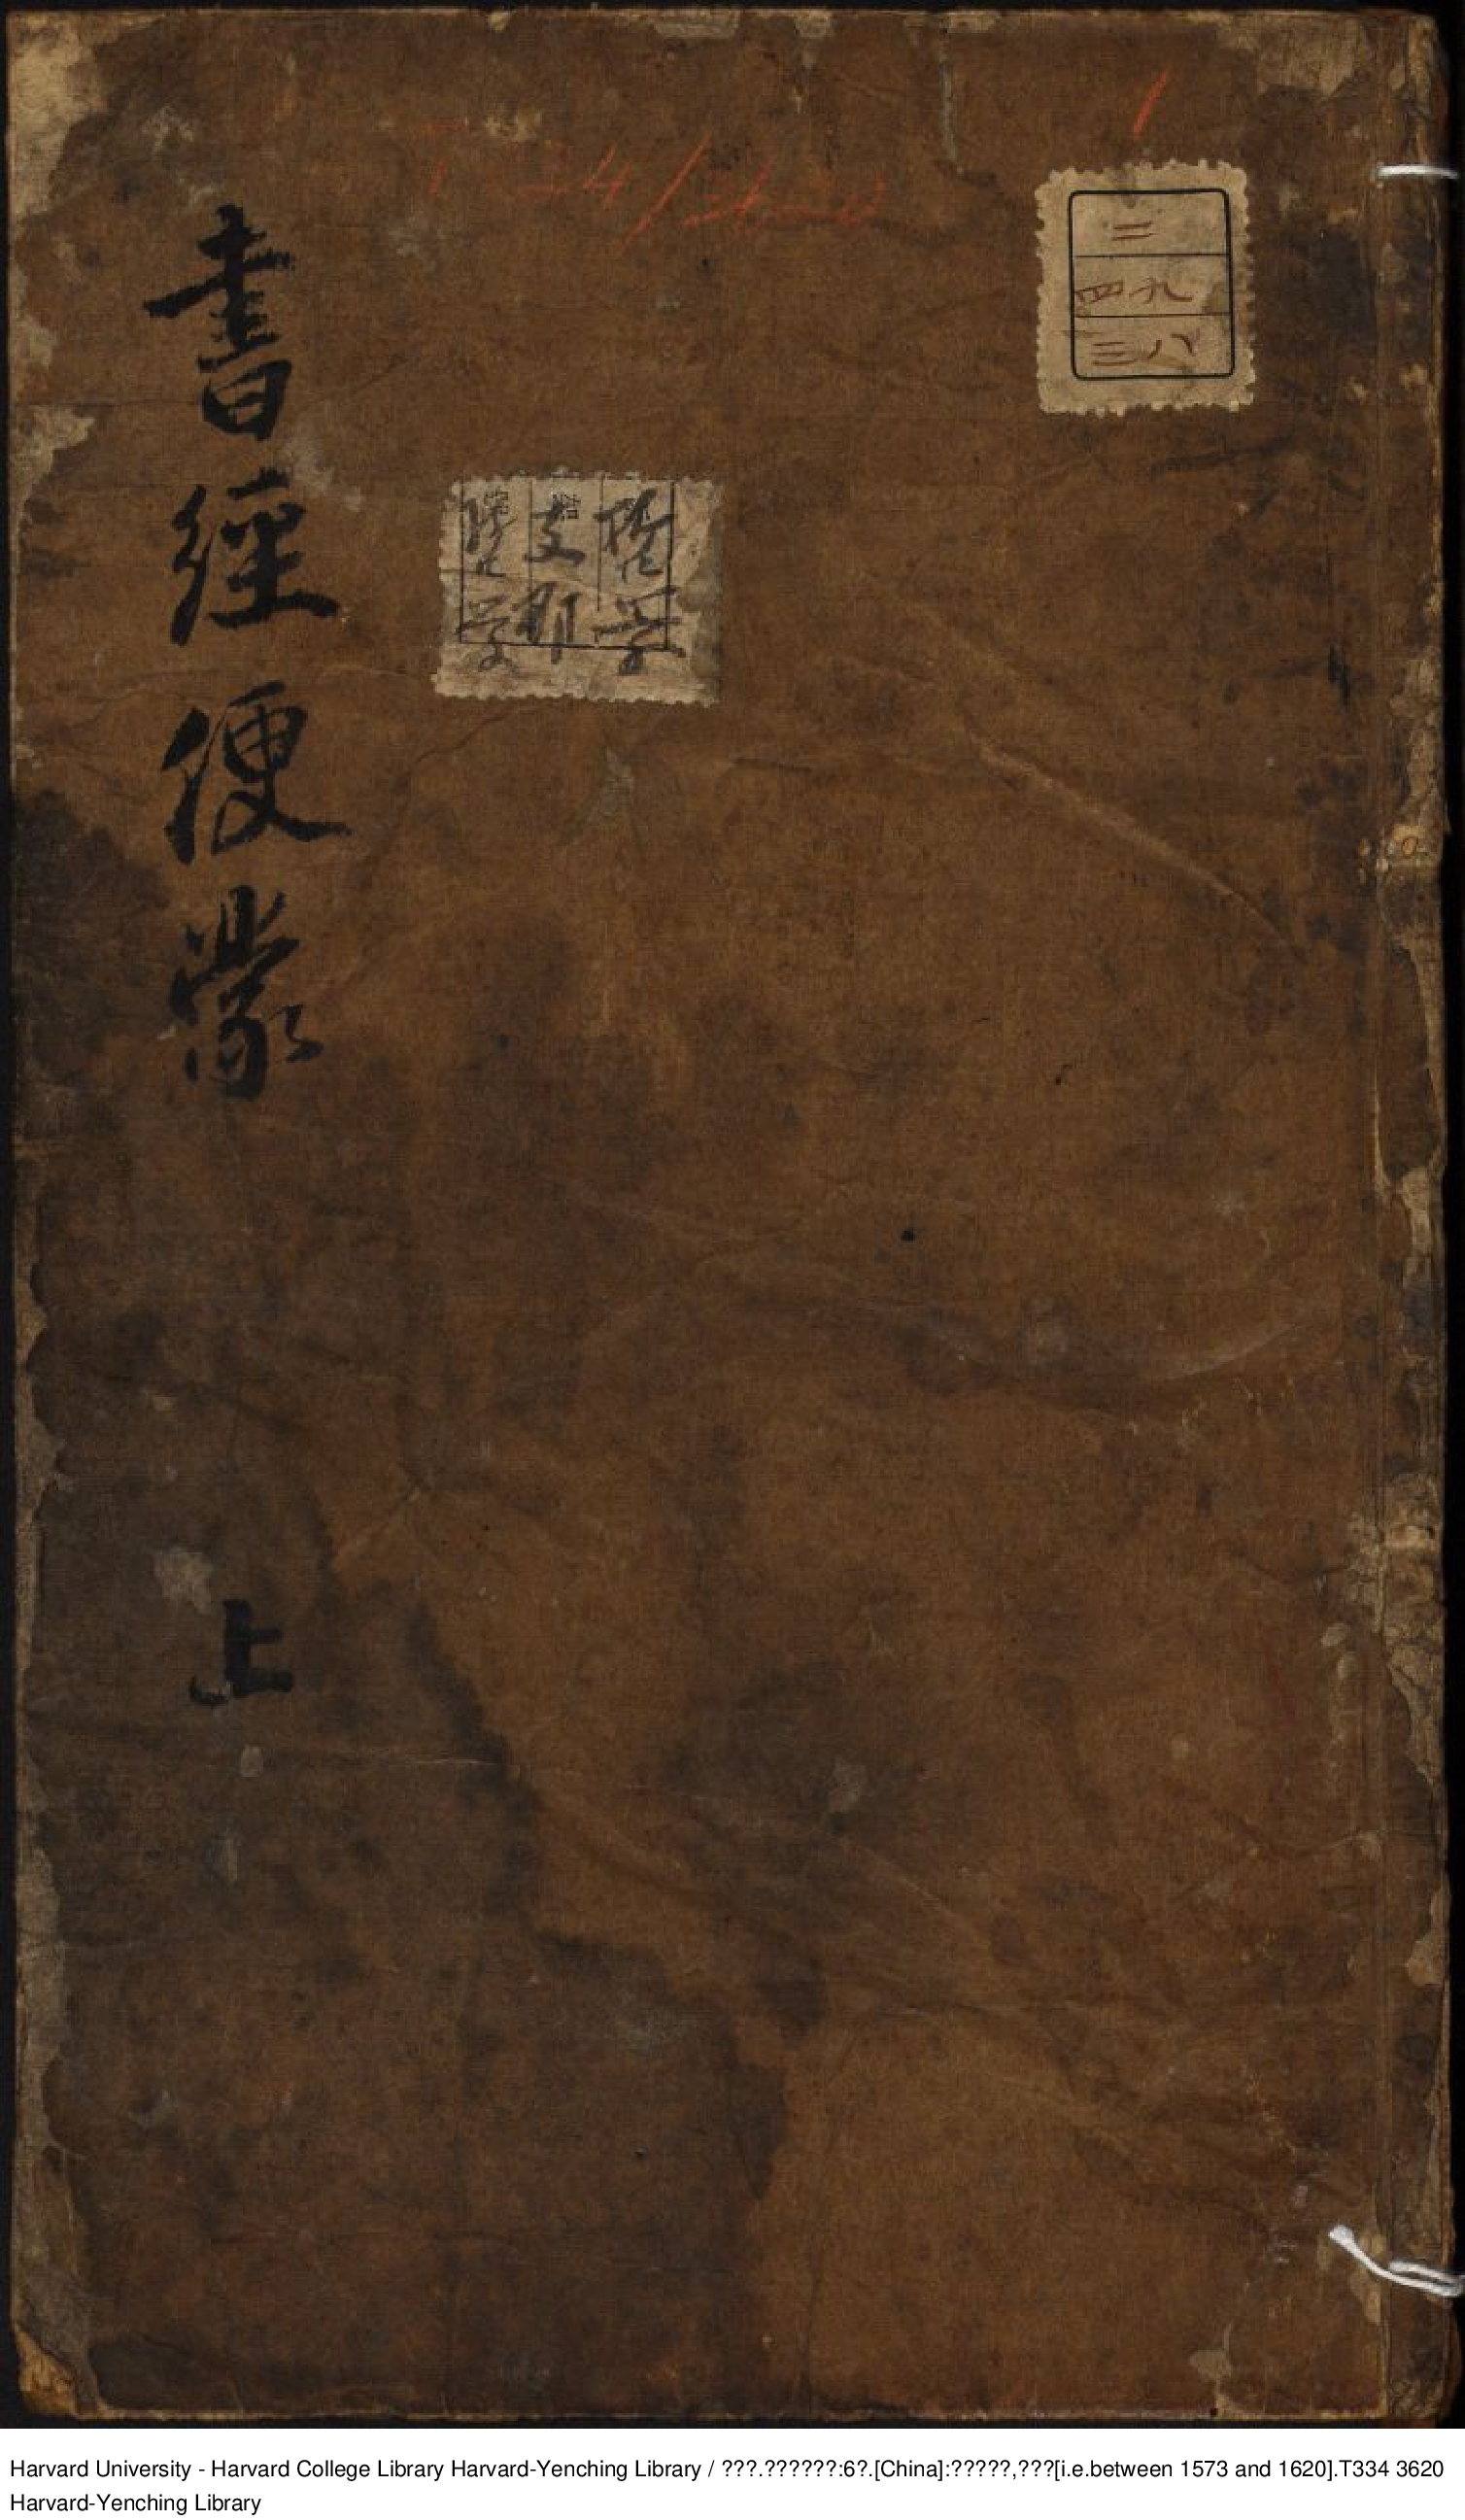 1
T334/3620
二
四九
三八
哲学
支那
書經便蒙
上
Harvard University - Harvard College Library Harvard-Yenching Library / ???.??????:6?.[China]:?????,???[i.e.between 1573 and 1620].T334 3620
Harvard-Yenching Library